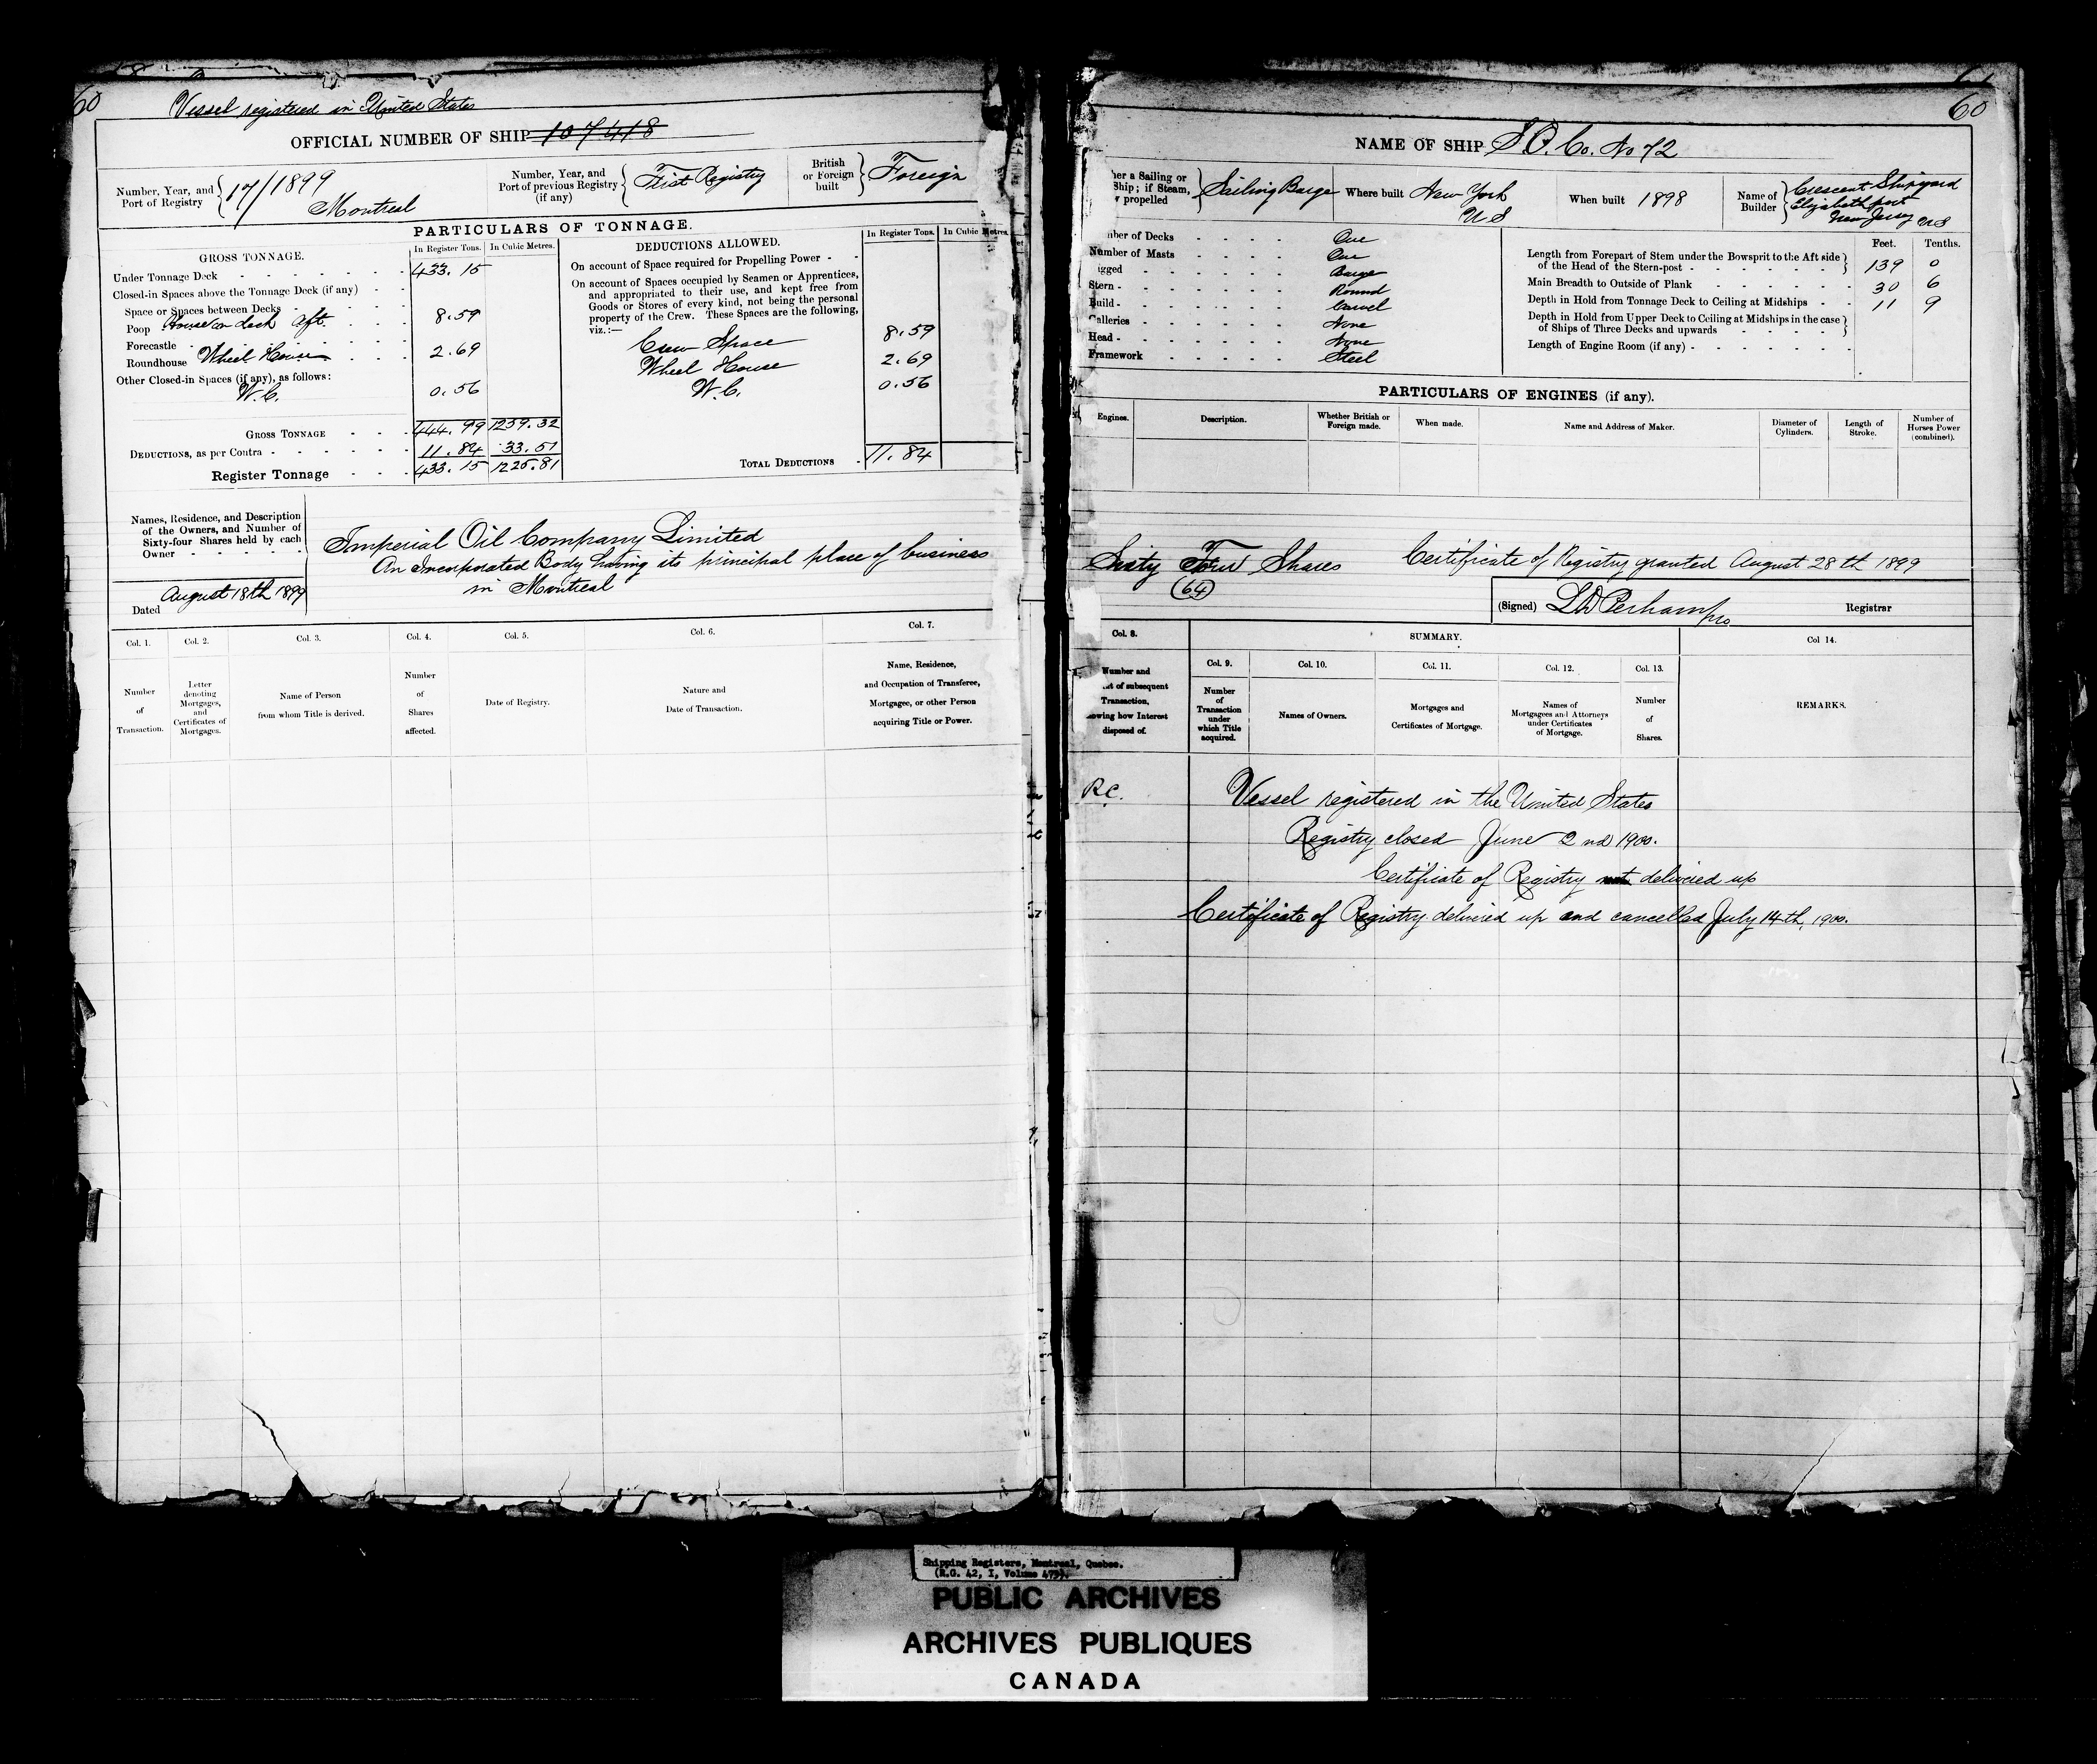 60
Vessel registered in United States
OFFICIAL NUMBER OF SHIP 107418
Number, Year, and Port of Registry 17/1899 Montreal
Number, Year, and Port of previous Registry (if any) First Registry
British or Foreign built Foreign
PARTICULARS OF TONNAGE.
GROSS TONNAGE. In Register Tons. In Cubic Metres.
Under Tonnage Deck 433.15
Closed-in Spaces above the Tonnage Deck (if any)
Space or Spaces between Decks
Poop House on deck aft. 8.59
Forecastle
Roundhouse Wheel House 2.69
Other Closed-in Spaces (if any), as follows:
W.C. 0.56
GROSS TONNAGE 444.99 1259.32
DEDUCTIONS, as per Contra 11.84 33.51
Register Tonnage 433.15 1225.81
DEDUCTIONS ALLOWED. In Register Tons. In Cubic Metres.
On account of Space required for Propelling Power
On account of Spaces occupied by Seamen or Apprentices,
and appropriated to their use, and kept free from
Goods or Stores of every kind, not being the personal
property of the Crew. These Spaces are the following,
viz.:—
Crew Space 8.59
Wheel House 2.69
W.C. 0.56
TOTAL DEDUCTIONS 11.84
Names, Residence, and Description
of the Owners, and Number of
Sixty-four Shares held by each
Owner
Imperial Oil Company Limited
An Incorporated Body having its principal place of business
in Montreal
Dated August 18th 1899
Col. 1. Col. 2. Col. 3. Col. 4. Col. 5. Col. 6. Col. 7.
Number of Transaction.
Letter denoting Mortgages, and Certificates of Mortgages.
Name of Person from whom Title is derived.
Number of Shares affected.
Date of Registry.
Nature and Date of Transaction.
Name, Residence, and Occupation of Transferee, Mortgagee, or other Person acquiring Title or Power.
60
NAME OF SHIP S.O. Co. No 72
her a Sailing or
Ship; if Steam,
propelled
Sailing Barge
Where built New York US
When built 1898
Name of Builder Crescent Shipyard Elizabethport New Jersey US
ber of Decks One
Number of Masts One
igged Barge
Stern Round
Build Carvel
Galleries None
Head None
Framework Steel
Feet. Tenths.
Length from Forepart of Stem under the Bowsprit to the Aft side
of the Head of the Stern-post 139 0
Main Breadth to Outside of Plank 30 6
Depth in Hold from Tonnage Deck to Ceiling at Midships 11 9
Depth in Hold from Upper Deck to Ceiling at Midships in the case
of Ships of Three Decks and upwards
Length of Engine Room (if any)
PARTICULARS OF ENGINES (if any).
Engines.
Description.
Whether British or Foreign made.
When made.
Name and Address of Maker.
Diameter of Cylinders.
Length of Stroke.
Number of Horses Power (combined).
Sixty Four Shares Certificate of Registry granted August 28th 1899
(64)
(Signed) Registrar
Col. 8. SUMMARY. Col 14.
Col. 9. Col. 10. Col. 11. Col. 12. Col. 13.
Number and
of subsequent
Transaction,
owing how Interest
disposed of.
Number of Transaction under which Title acquired.
Names of Owners.
Mortgages and Certificates of Mortgage.
Names of Mortgagees and Attorneys under Certificates of Mortgage.
Number of Shares.
REMARKS.
R.C. Vessel registered in the United States
Registry closed June 2nd 1900.
Certificate of Registry not delivered up
Certificate of Registry delivered up and cancelled July 14th, 1900.
Shipping Registers, Montreal, Quebec.
(R.G. 42, I, Volume
PUBLIC ARCHIVES
ARCHIVES PUBLIQUES
CANADA